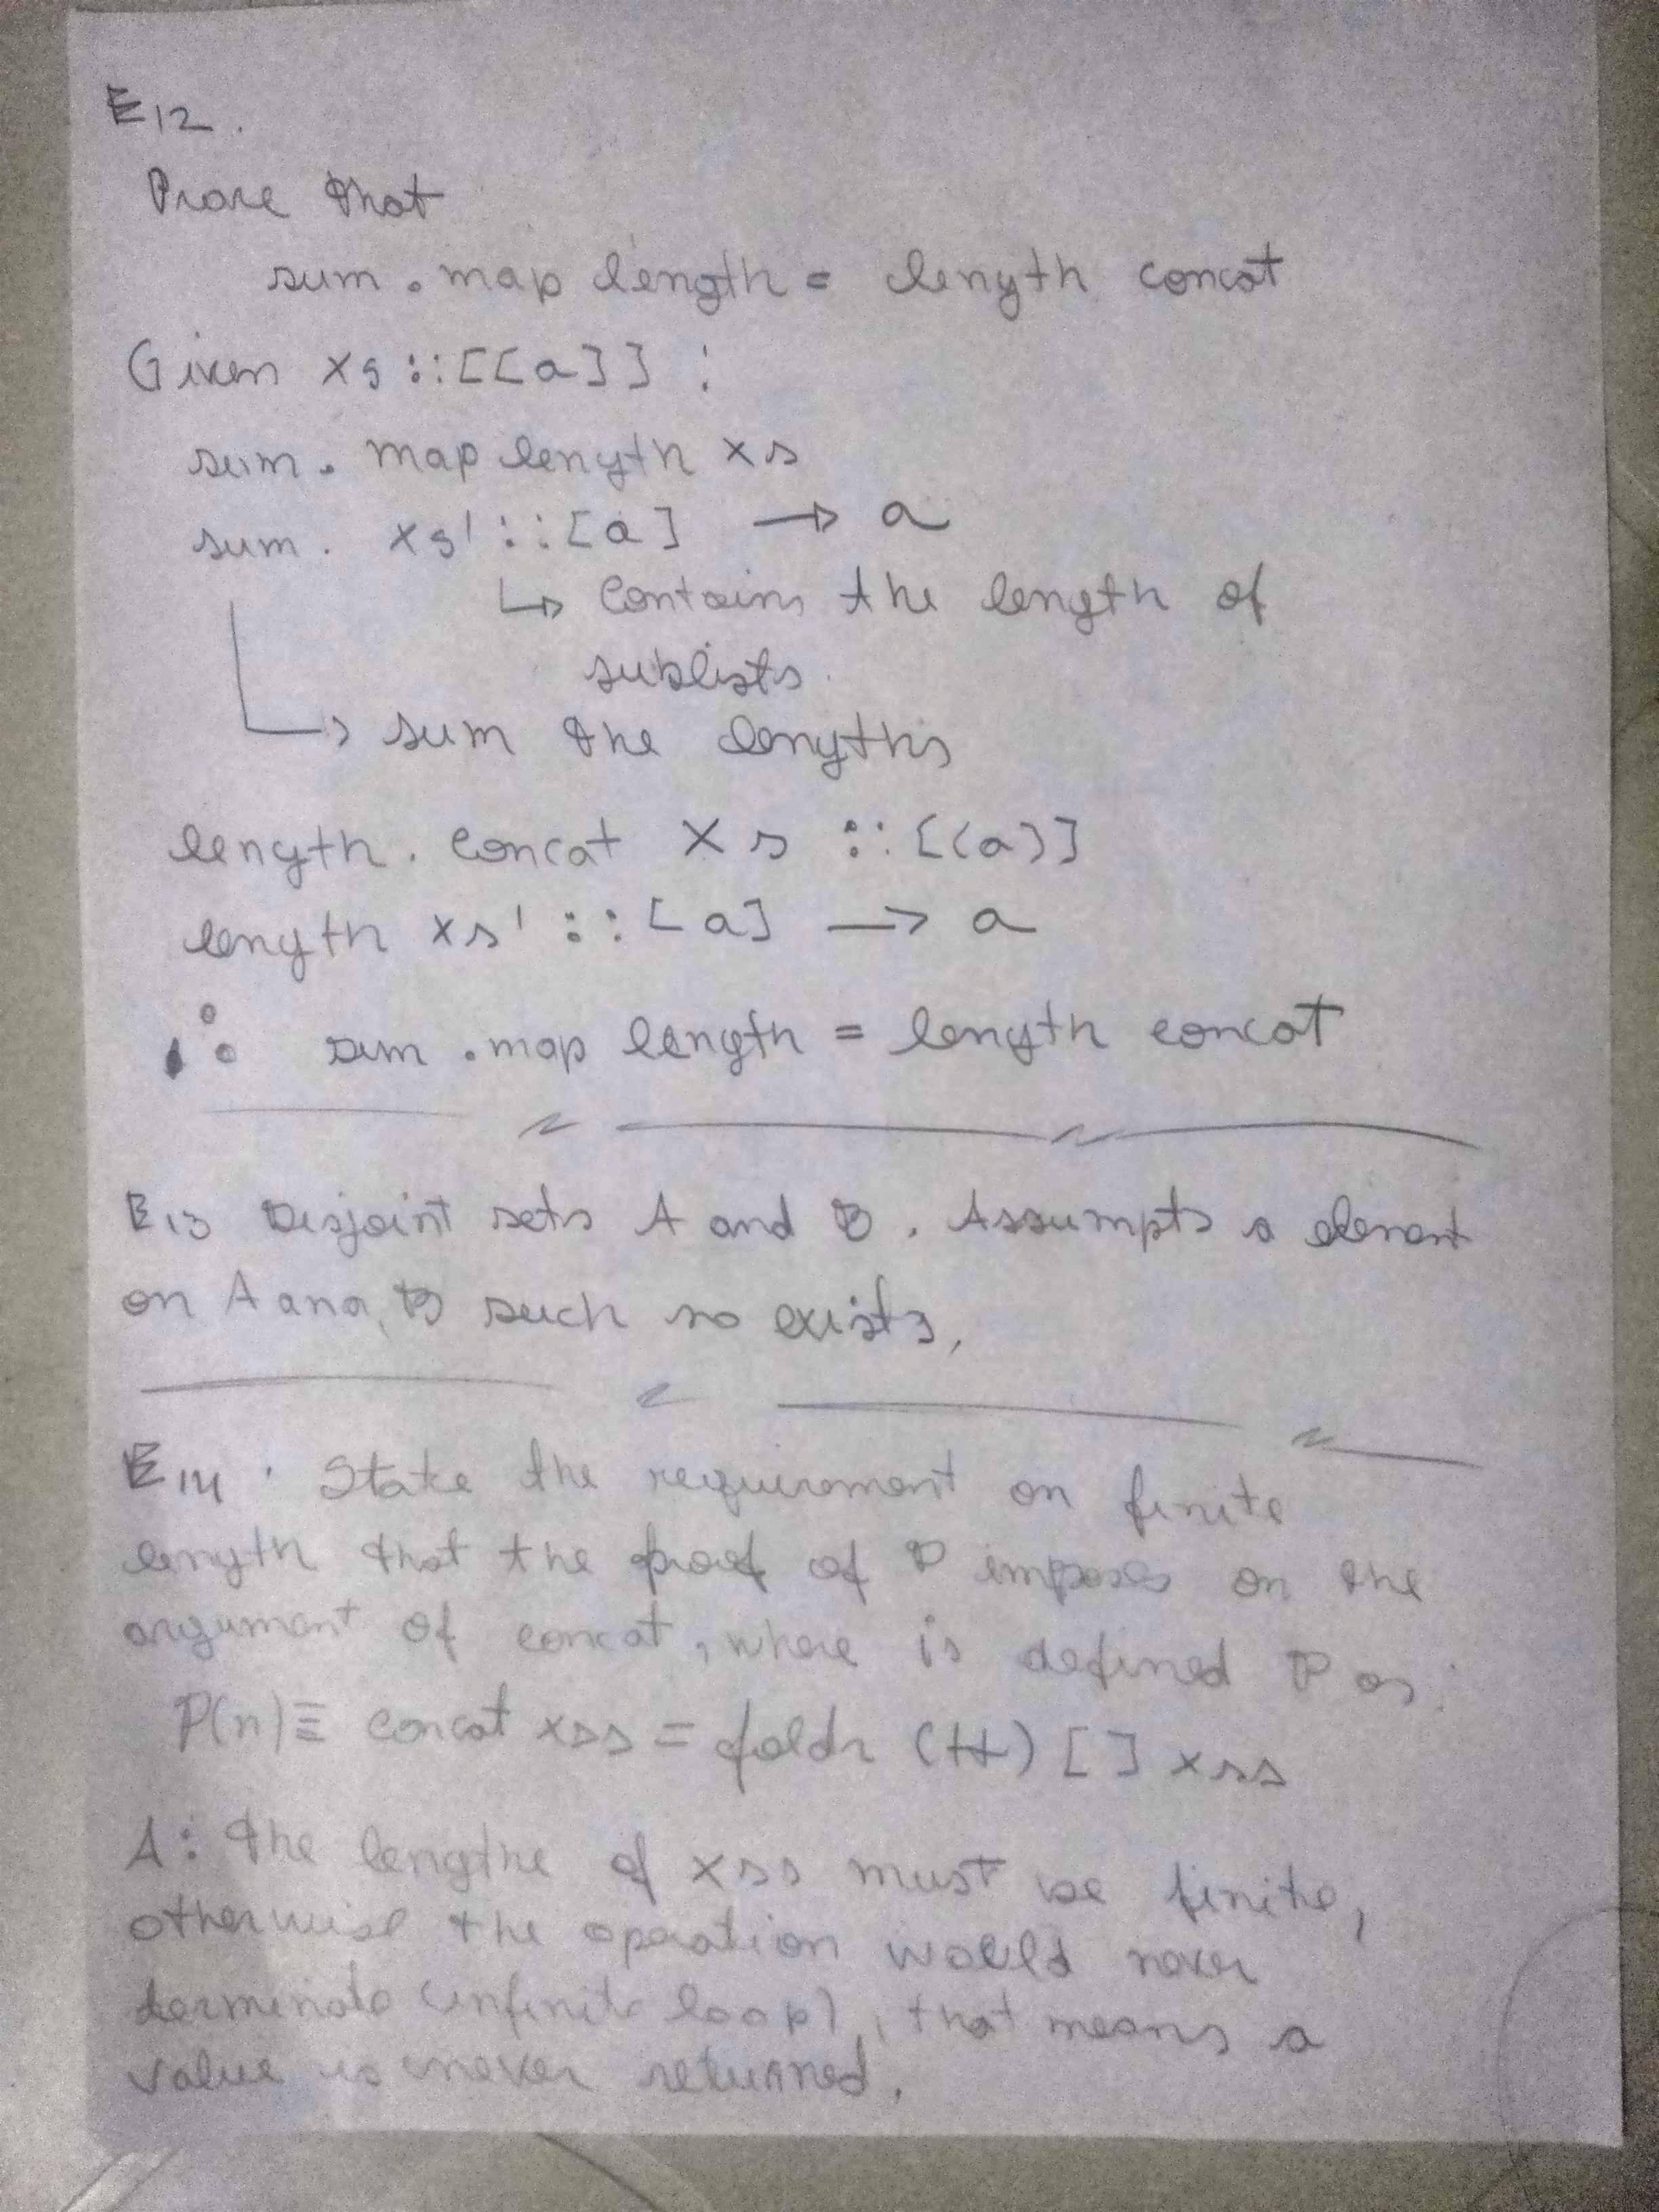 E12.
Prove that
sum . map length = length concat
Given xs :: [[a]] :
sum . map length xs
sum . xs' :: [a] → a
↳ Contains the length of
sublists.
↳ sum the lengths
length . concat xs :: [[a]]
length xs' :: [a] → a
∴ sum . map length = length concat
E13 Disjoint sets A and B . Assumpts a element
on A and B such no exists,
E14 . State the requirement on finite
length that the proof of P imposes on the
argument of concat, where is defined P as:
P(n) ≡ concat xss = foldr (++) [] xss
A: the lengthe of xss must be finite,
otherwise the operation would never
terminate (infinite loop), that means a
value is never returned.